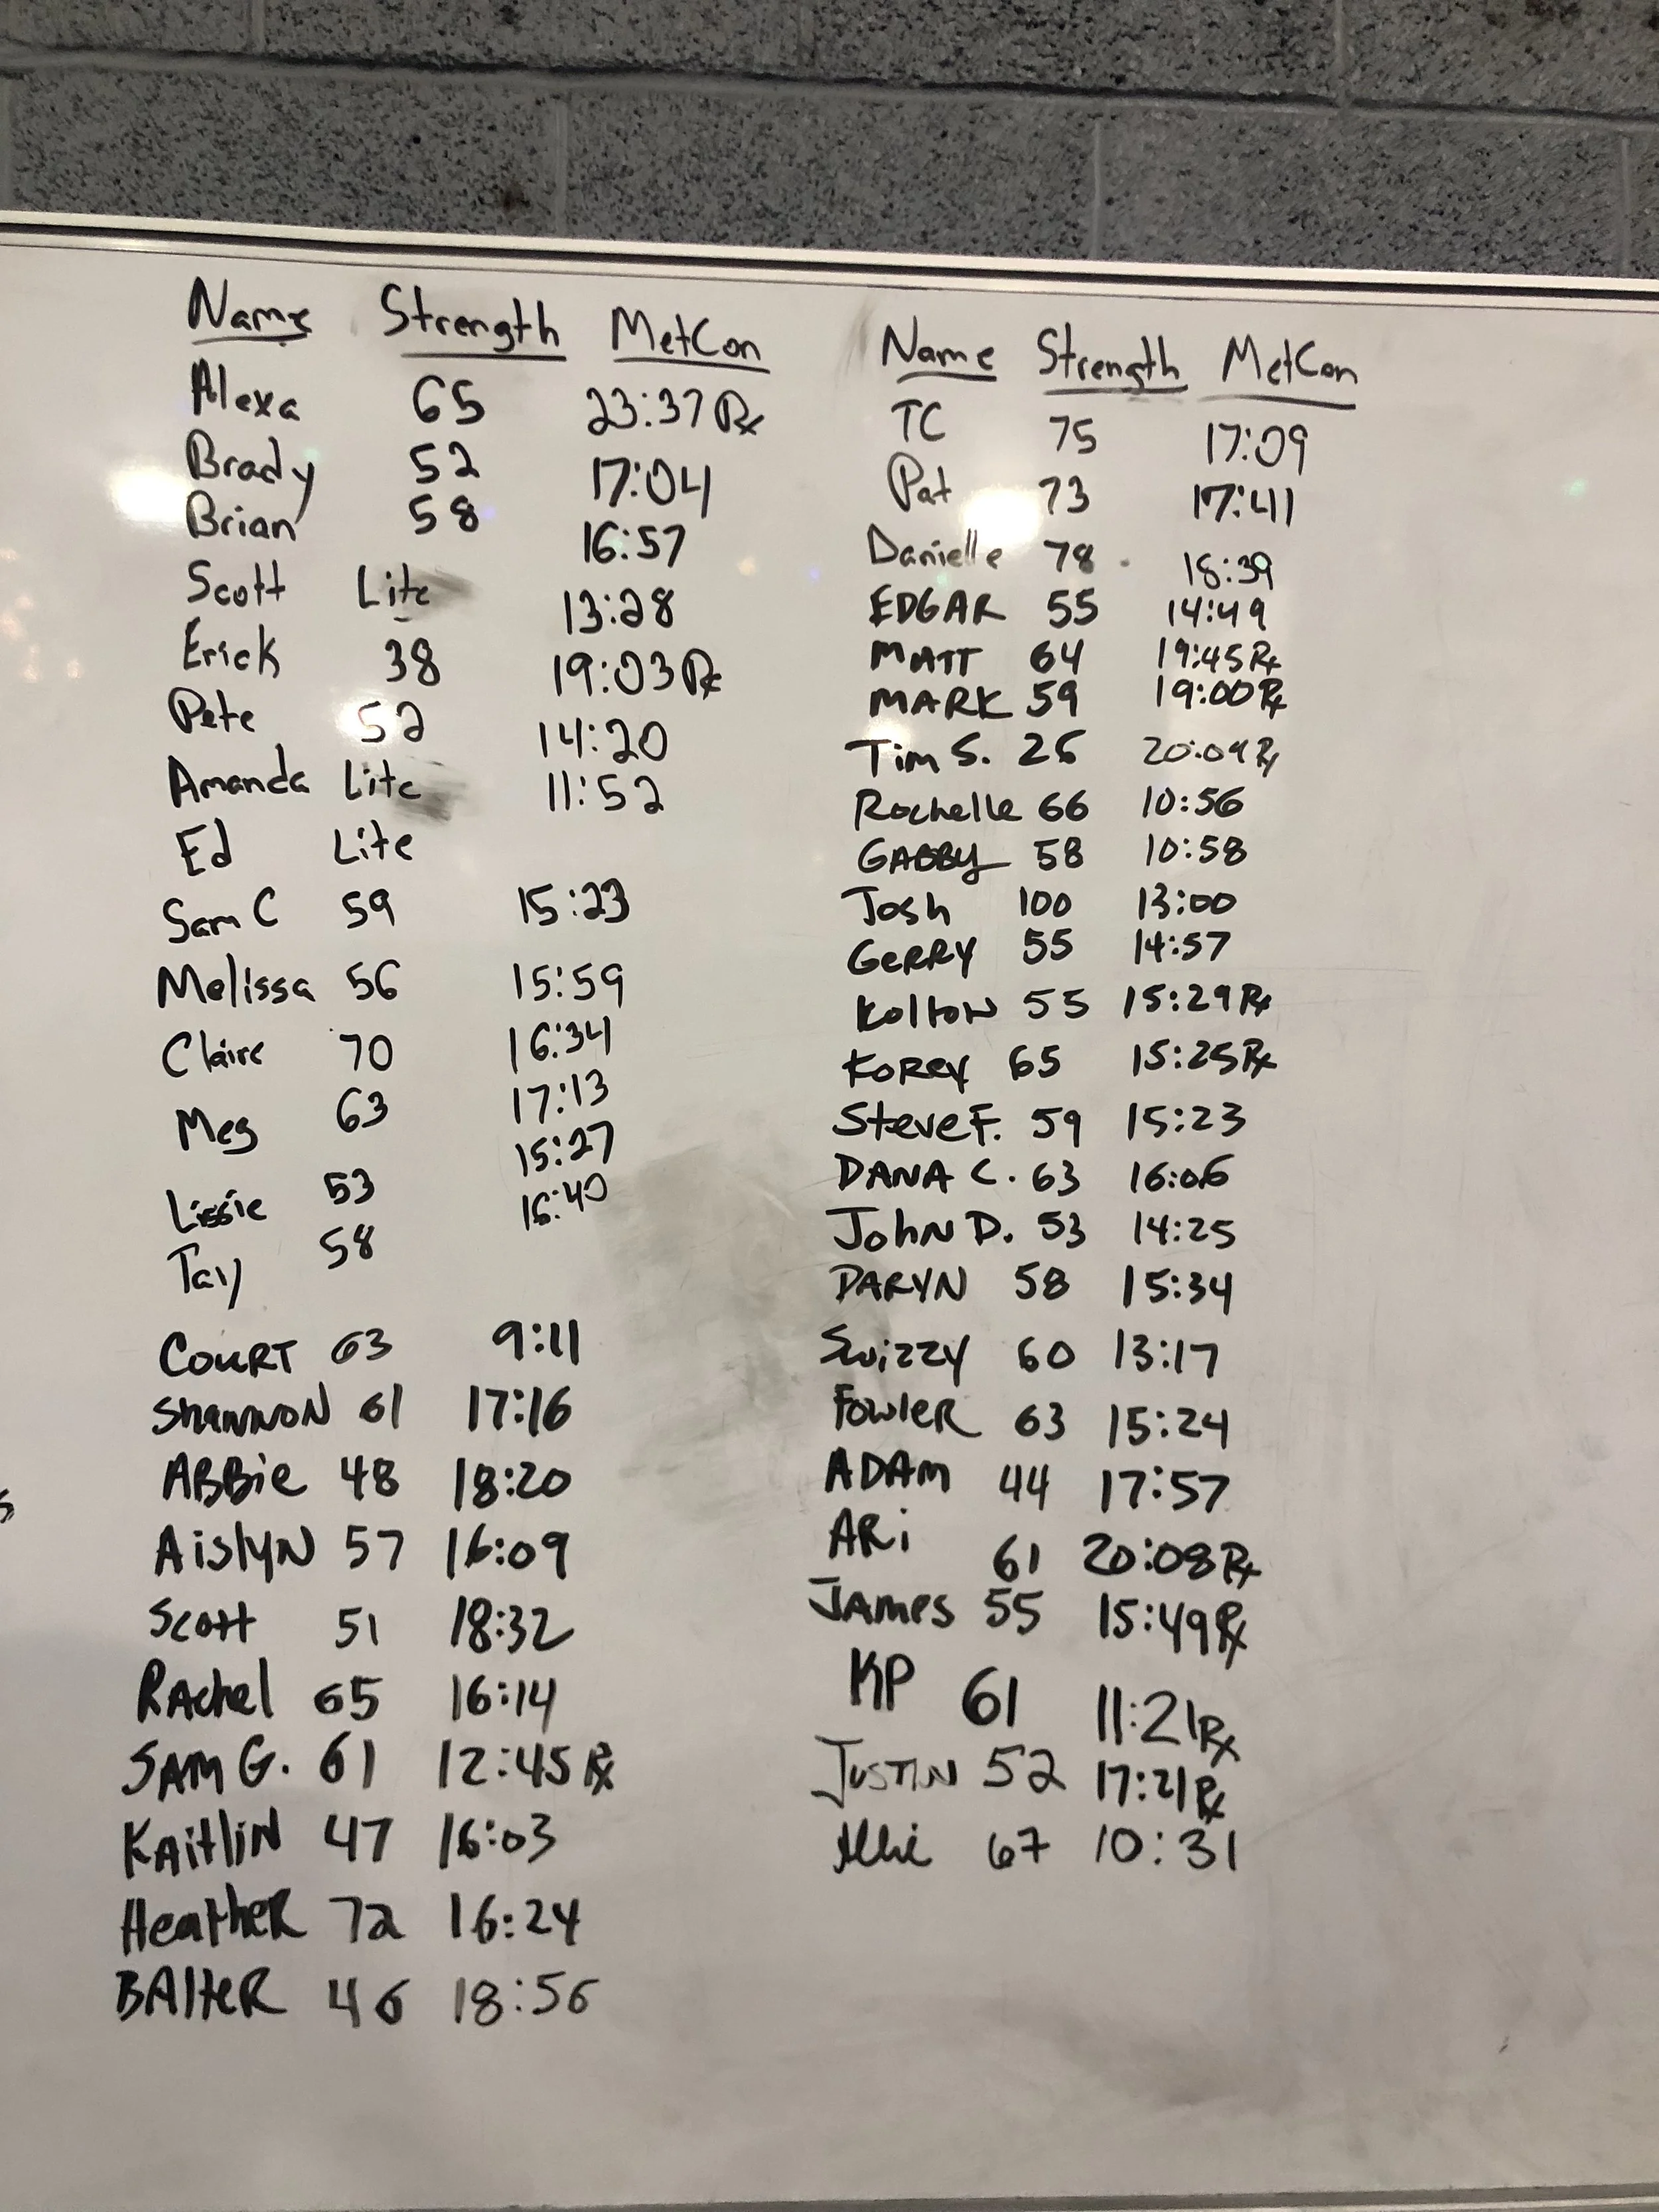 Name Strength MetCon
Alexa 65 23:37 Rx
Brady 52 17:04
Brian 58 16:57
Scott Lite 13:28
Erick 38 19:03 Rx
Pete 52 14:20
Amanda Lite 11:52
Ed Lite
Sam C 59 15:23
Melissa 56 15:59
Claire 70 16:34
Meg 63 17:13
Lissie 53 15:27
Tay 58 16:40
COURT 63 9:11
SHANNON 61 17:16
ABBie 48 18:20
AislyN 57 16:09
Scott 51 18:32
RAchel 65 16:14
SAM G. 61 12:45 Rx
KAitliN 47 16:03
HeatheR 72 16:24
BAlteR 46 18:56
Name Strength MetCon
TC 75 17:09
Pat 73 17:41
Danielle 78 18:39
EDGAR 55 14:49
MATT 64 19:45 Rx
MARK 59 19:00 Rx
Tim S. 26 20:09 Rx
Rochelle 66 10:56
GABBY 58 10:58
Josh 100 13:00
GeRRY 55 14:57
KoltoN 55 15:29 Rx
KoRey 65 15:25 Rx
Steve F. 59 15:23
DANA C. 63 16:06
JohN D. 53 14:25
DARYN 58 15:34
Swizzy 60 13:17
FowleR 63 15:24
ADAM 44 17:57
ARi 61 20:08 Rx
JAMes 55 15:49 Rx
KP 61 11:21 Rx
JUSTIN 52 17:21 Rx
Allie 67 10:31